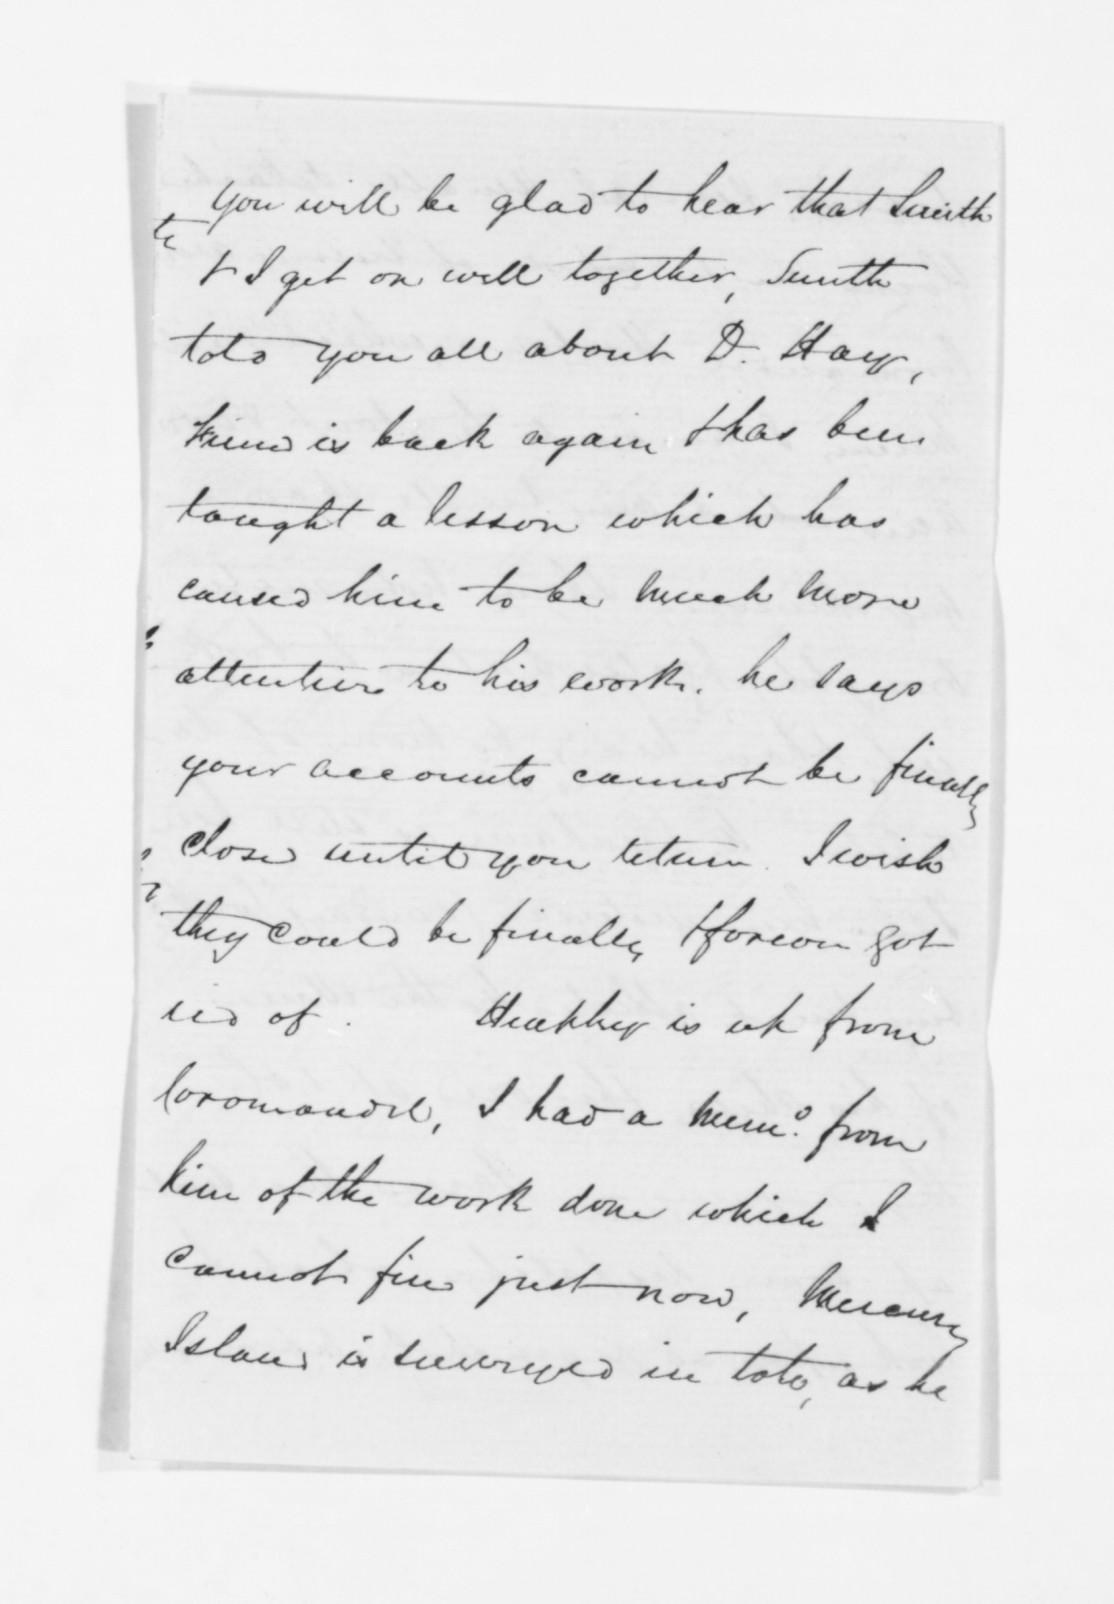 You will be glad to hear that Smith
& I get on well together, Smith
told you all about D. Hay,
is back again & has been
taught a lesson which has
caused him to be much more
attentive to his work. he says
your accounts cannot be finally
close until you return. I wish
they could be finally & forever got
rid of. is up from
Coromandel, I had a Memo. from
him of the work done which I
cannot find just now, Mercury
Island is surveyed in toto, as he